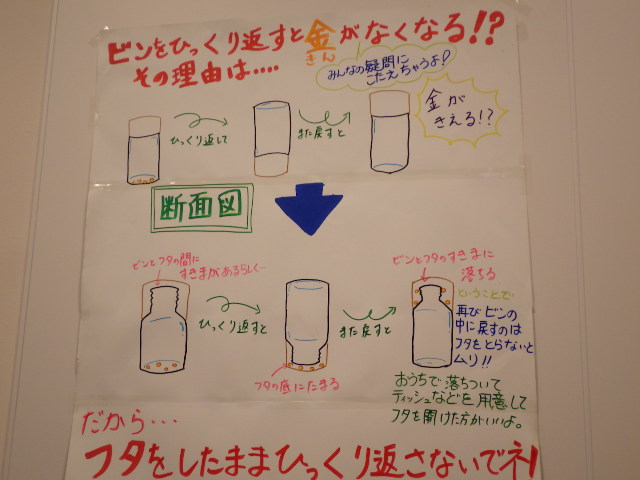 ビンをひっくり返すと金がなくなる!?
きん
その理由は....
みんなの疑問に
こたえちゃうよ?
金が
きえる!?
ひっくり返して
また戻すと
断面図
ビンとフタの間に
すきまがあるらしく…
ひっくり返すと
フタの底にたまる
また戻すと
ビンとフタのすきまに
落ちる
ということで
再びビンの
中に戻すのは
フタをとらないと
ムリ!!
おうちで落ちついて
ティッシュなどを用意して
フタを開けた方がいいよ。
だから…
フタをしたままひっくり返さないでネ!